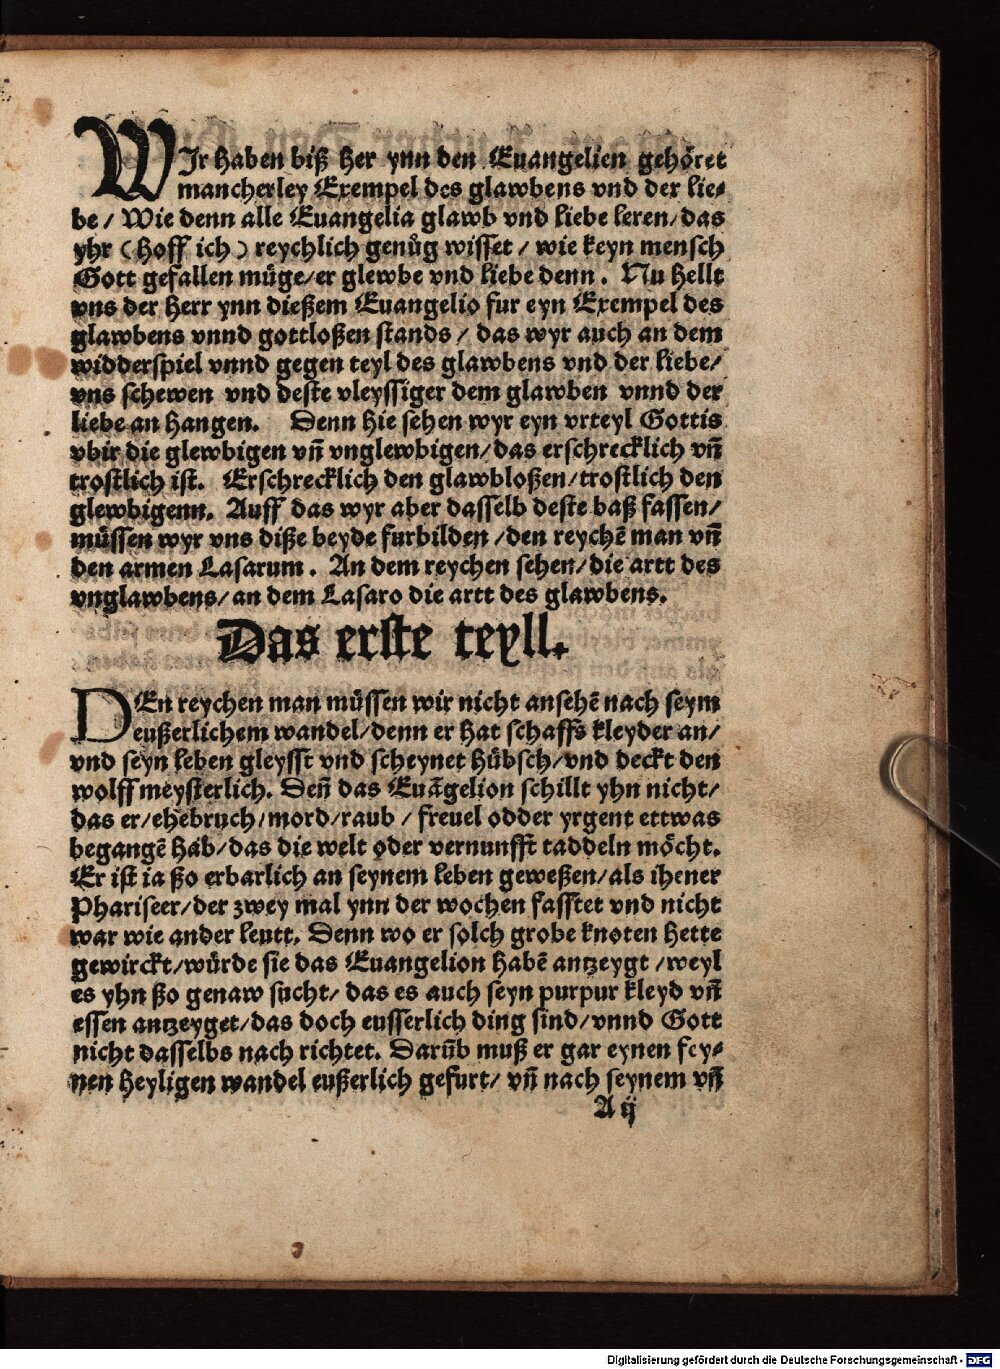 WIr haben biß her ynn den Euangelien gehöret
mancherley Exempel des glawbens vnd der lie-
be / Wie denn alle Euangelia glawb vnd liebe leren / das
yhr (hoff ich) reychlich genůg wisset / wie keyn mensch
Gott gefallen müge / er glewbe vnd liebe denn. Nu hellt
vns der Herr ynn dießem Euangelio fur eyn Exempel des
glawbens vnnd gottloßen stands / das wyr auch an dem
widderspiel vnnd gegen teyl des glawbens vnd der liebe /
vns schewen vnd deste vleyssiger dem glawben vnnd der
liebe an hangen. Denn hie sehen wyr eyn vrteyl Gottis
vbir die glewbigen vn̄ vnglewbigen / das erschrecklich vn̄
trostlich ist. Erschrecklich den glawbloßen / trostlich den
glewbigenn. Auff das wyr aber dasselb deste baß fassen /
müssen wyr vns diße beyde furbilden / den reychē man vn̄
den armen Lasarum. An dem reychen sehen / die artt des
vnglawbens / an dem Lasaro die artt des glawbens.
Das erste teyll.
DEn reychen man müssen wir nicht ansehē nach seym
eußerlichem wandel / denn er hat schaffs kleyder an /
vnd seyn leben gleysst vnd scheynet hübsch / vnd deckt den
wolff meysterlich. Den̄ das Euāgelion schillt yhn nicht /
das er / ehebruch / mord / raub / freuel odder yrgent ettwas
begangē hab / das die welt oder vernunfft taddeln möcht.
Er ist ia ßo erbarlich an seynem leben geweßen / als ihener
Phariseer / der zwey mal ynn der wochen fasstet vnd nicht
war wie ander leutt. Denn wo er solch grobe knoten hette
gewirckt / würde sie das Euangelion habē antzeygt / weyl
es yhn ßo genaw sucht / das es auch seyn purpur kleyd vn̄
essen antzeyget / das doch eusserlich ding sind / vnnd Gott
nicht dasselbs nach richtet. Darüb muß er gar eynen fey-
nen heyligen wandel eußerlich gefurt / vn̄ nach seynem vn̄
A ij
Digitalisierung gefördert durch die Deutsche Forschungsgemeinschaft - DFG